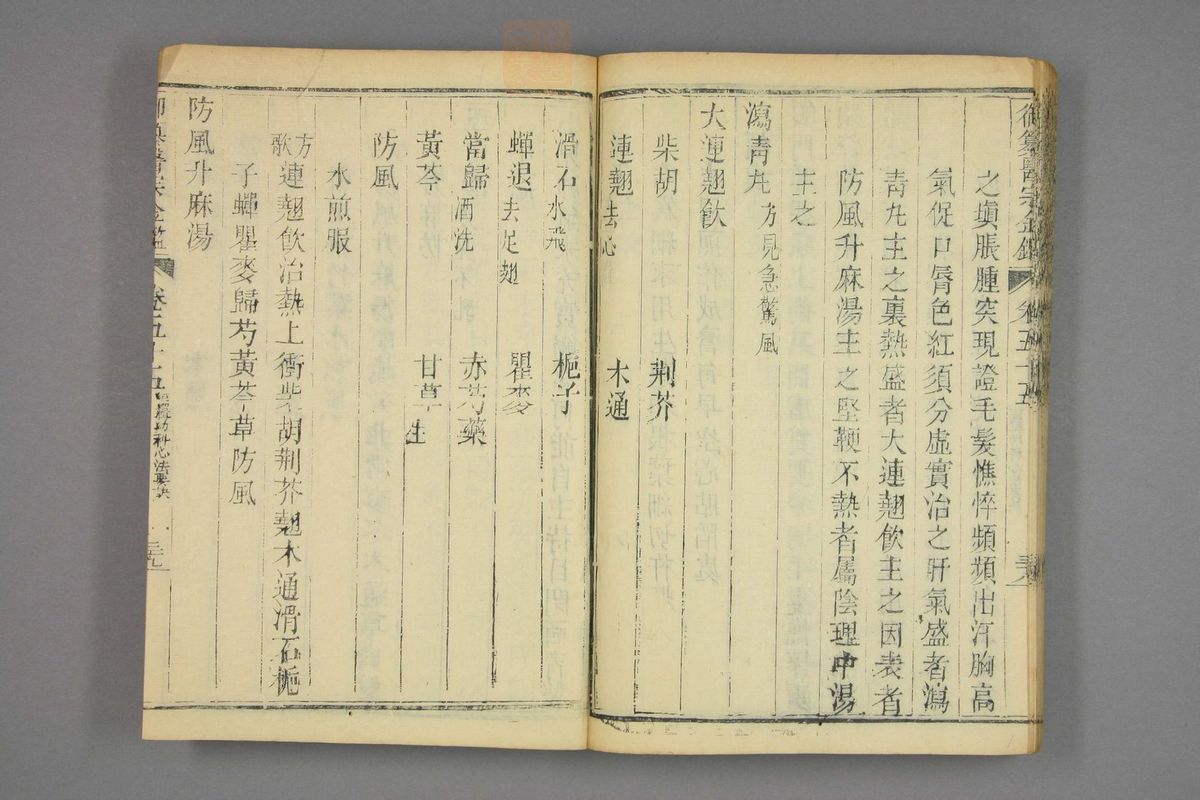 御纂醫宗金鑑 卷五十五
之塡脹腫突現證毛髮憔悴頻頻出汗胸高
氣促口脣色紅須分虛實治之肝氣盛者瀉
青丸主之裏熱盛者大連翹飲主之因表者
防風升麻湯主之堅鞕不熱者屬陰理中湯
主之
瀉青丸 方見急驚風
大連翹飲
柴胡 荆芥
連翹去心 木通
滑石水飛 梔子
蟬退去足翅 瞿麥
當歸酒洗 赤芍藥
黃芩 甘草生
防風
水煎服
方歌 連翹飲治熱上衝柴胡荆芥翹木通滑石梔
子蟬瞿麥歸芍黃芩草防風
防風升麻湯
御纂醫宗金鑑 卷五十五 幼科心法要訣 三九